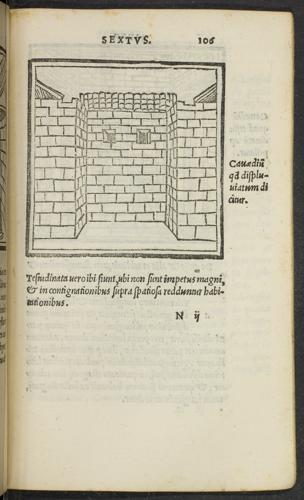 SEXTVS. 106
Cavædiū
qđ displu-
uiatum di
citur.
Testudinata vero ibi fiunt, ubi non sunt impetus magni,
& in contignationibus supra spatiosa redduntur habi-
tationibus.
N ij